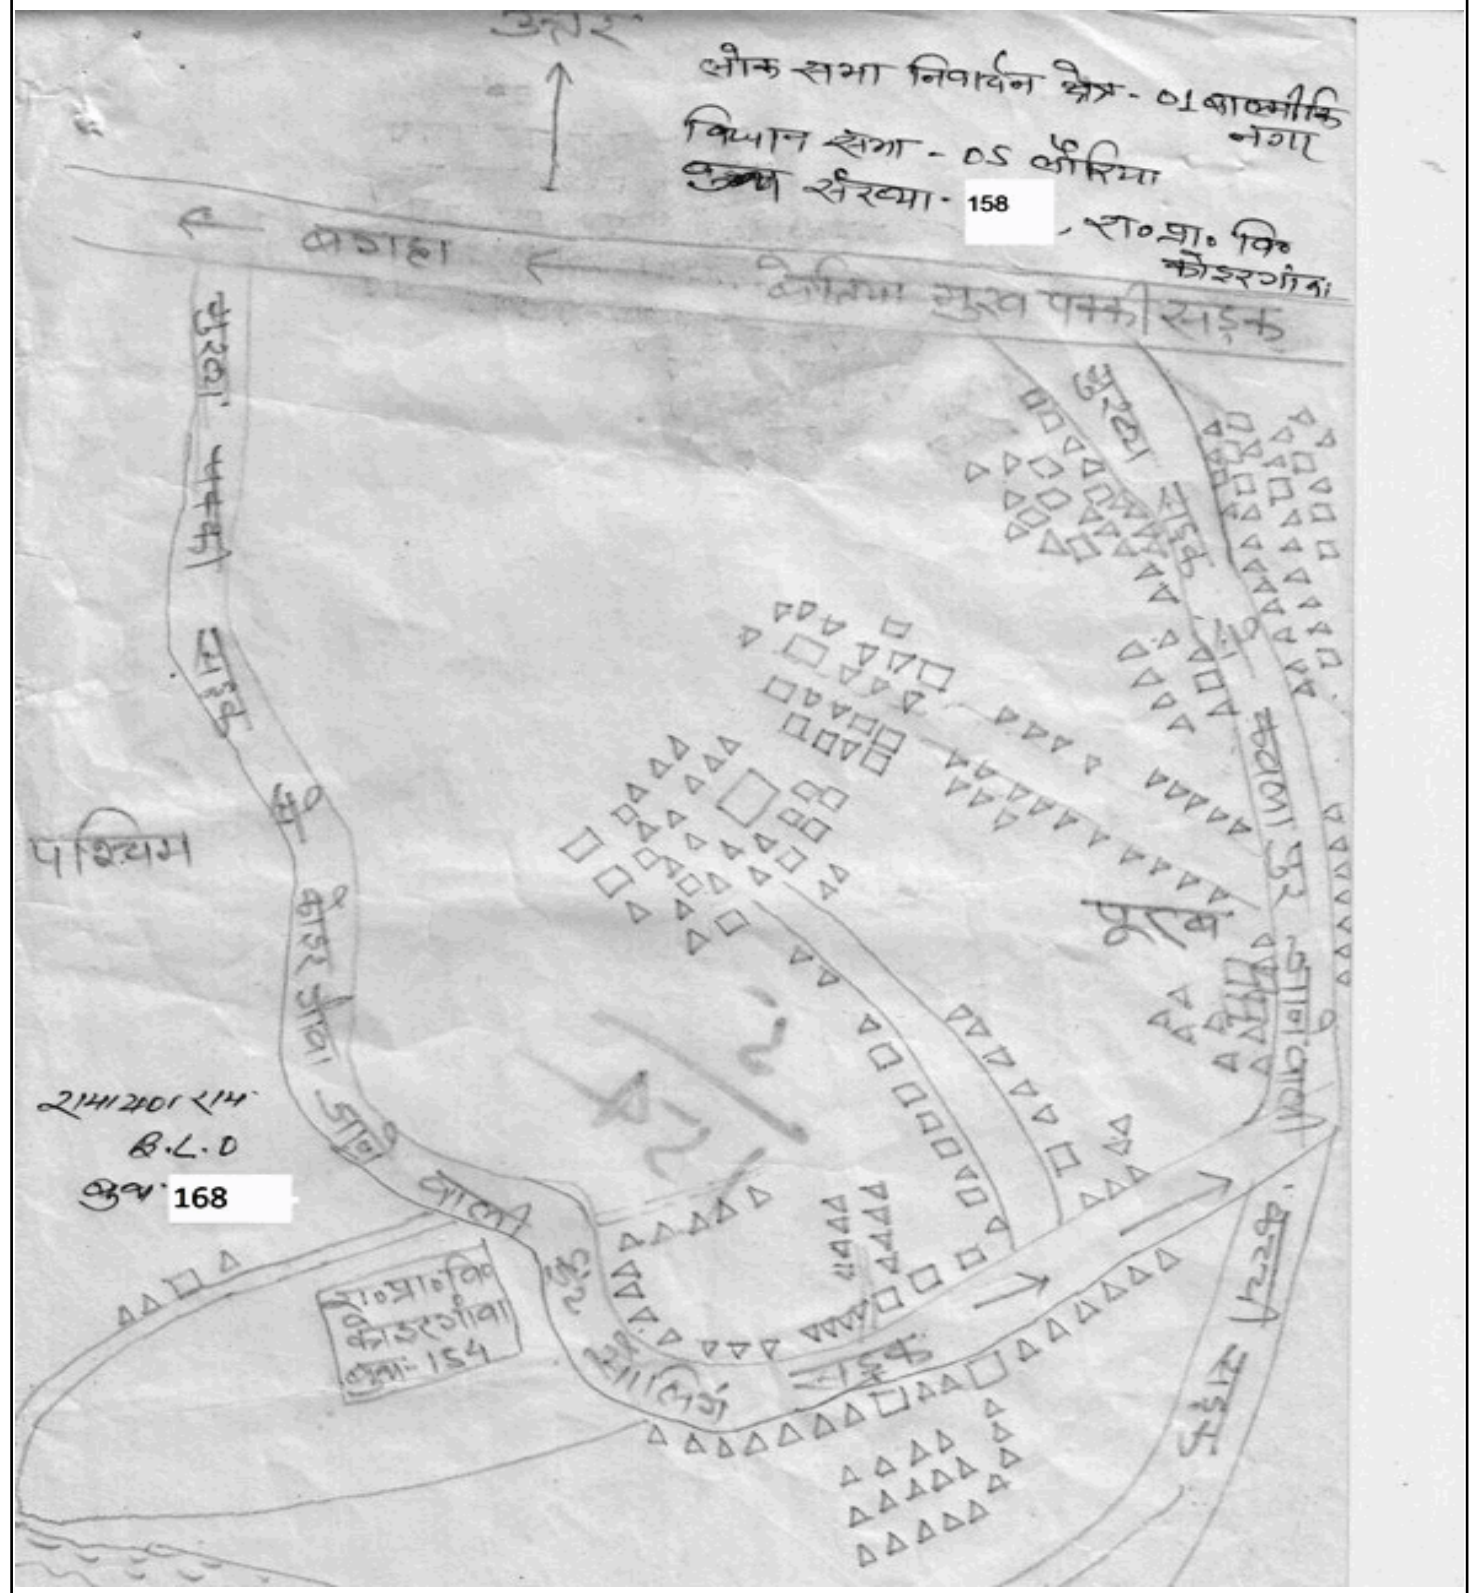 उत्तर
लोक सभा निर्वाचन क्षेत्र - 01 बाल्मीकि
नगर
विधान सभा - 05 लौरिया
संख्या - 158, रा० प्रा० वि०
कोइरगांवा
बगहा
बेतिया मुख्य पक्की सड़क
मुरला पक्की सड़क से कोइर गांवा जाने वाली
मुरला सड़क से
कवलापुर जाने वाली
पश्चिम
पूरब
रामायण राम
B.L.O
बुथ 168
रा० प्रा० वि०
कोइरगांवा
बुथ:- 154
सोलिंग
सड़क
कच्ची सड़क